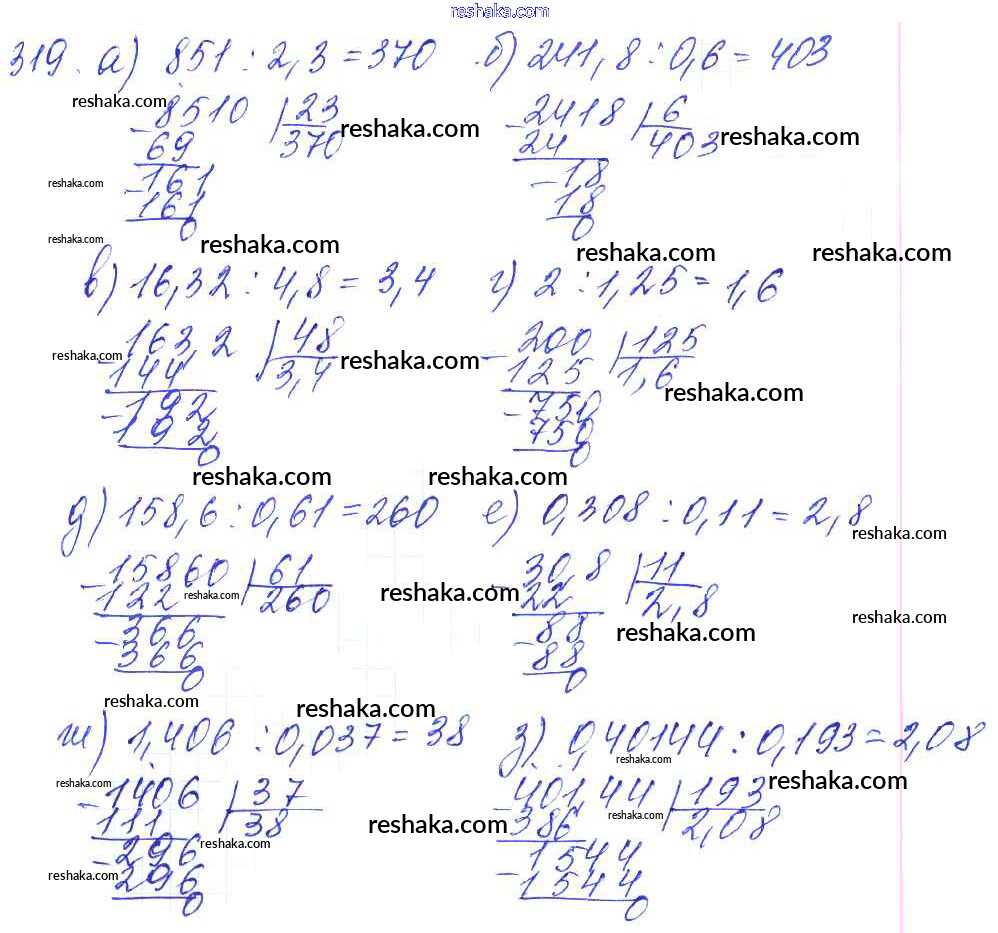 reshaka.com
319. а) 851 : 2,3 = 370 б) 241,8 : 0,6 = 403
reshaka.com
-8510 | 23 reshaka.com -2418 | 6 reshaka.com
69 370 24 403
reshaka.com
-161 -18
161 18
0 0
reshaka.com reshaka.com reshaka.com reshaka.com
в) 16,32 : 4,8 = 3,4 г) 2 : 1,25 = 1,6
reshaka.com
-163,2 | 48 reshaka.com -200 | 125
144 3,4 125 1,6 reshaka.com
-192 -750
192 750
0 0
reshaka.com reshaka.com
д) 158,6 : 0,61 = 260 е) 0,308 : 0,11 = 2,8
reshaka.com
-15860 | 61 -30,8 | 11
122 reshaka.com 260 reshaka.com 22 2,8
reshaka.com
-366 -88 reshaka.com
366 88
0 0
reshaka.com reshaka.com
ж) 1,406 : 0,037 = 38 з) 0,40144 : 0,193 = 2,08
reshaka.com
reshaka.com -1406 | 37 -401,44 | 193 reshaka.com
111 38 reshaka.com 386 reshaka.com 2,08
-296 reshaka.com 1544
reshaka.com 296 -1544
0 0